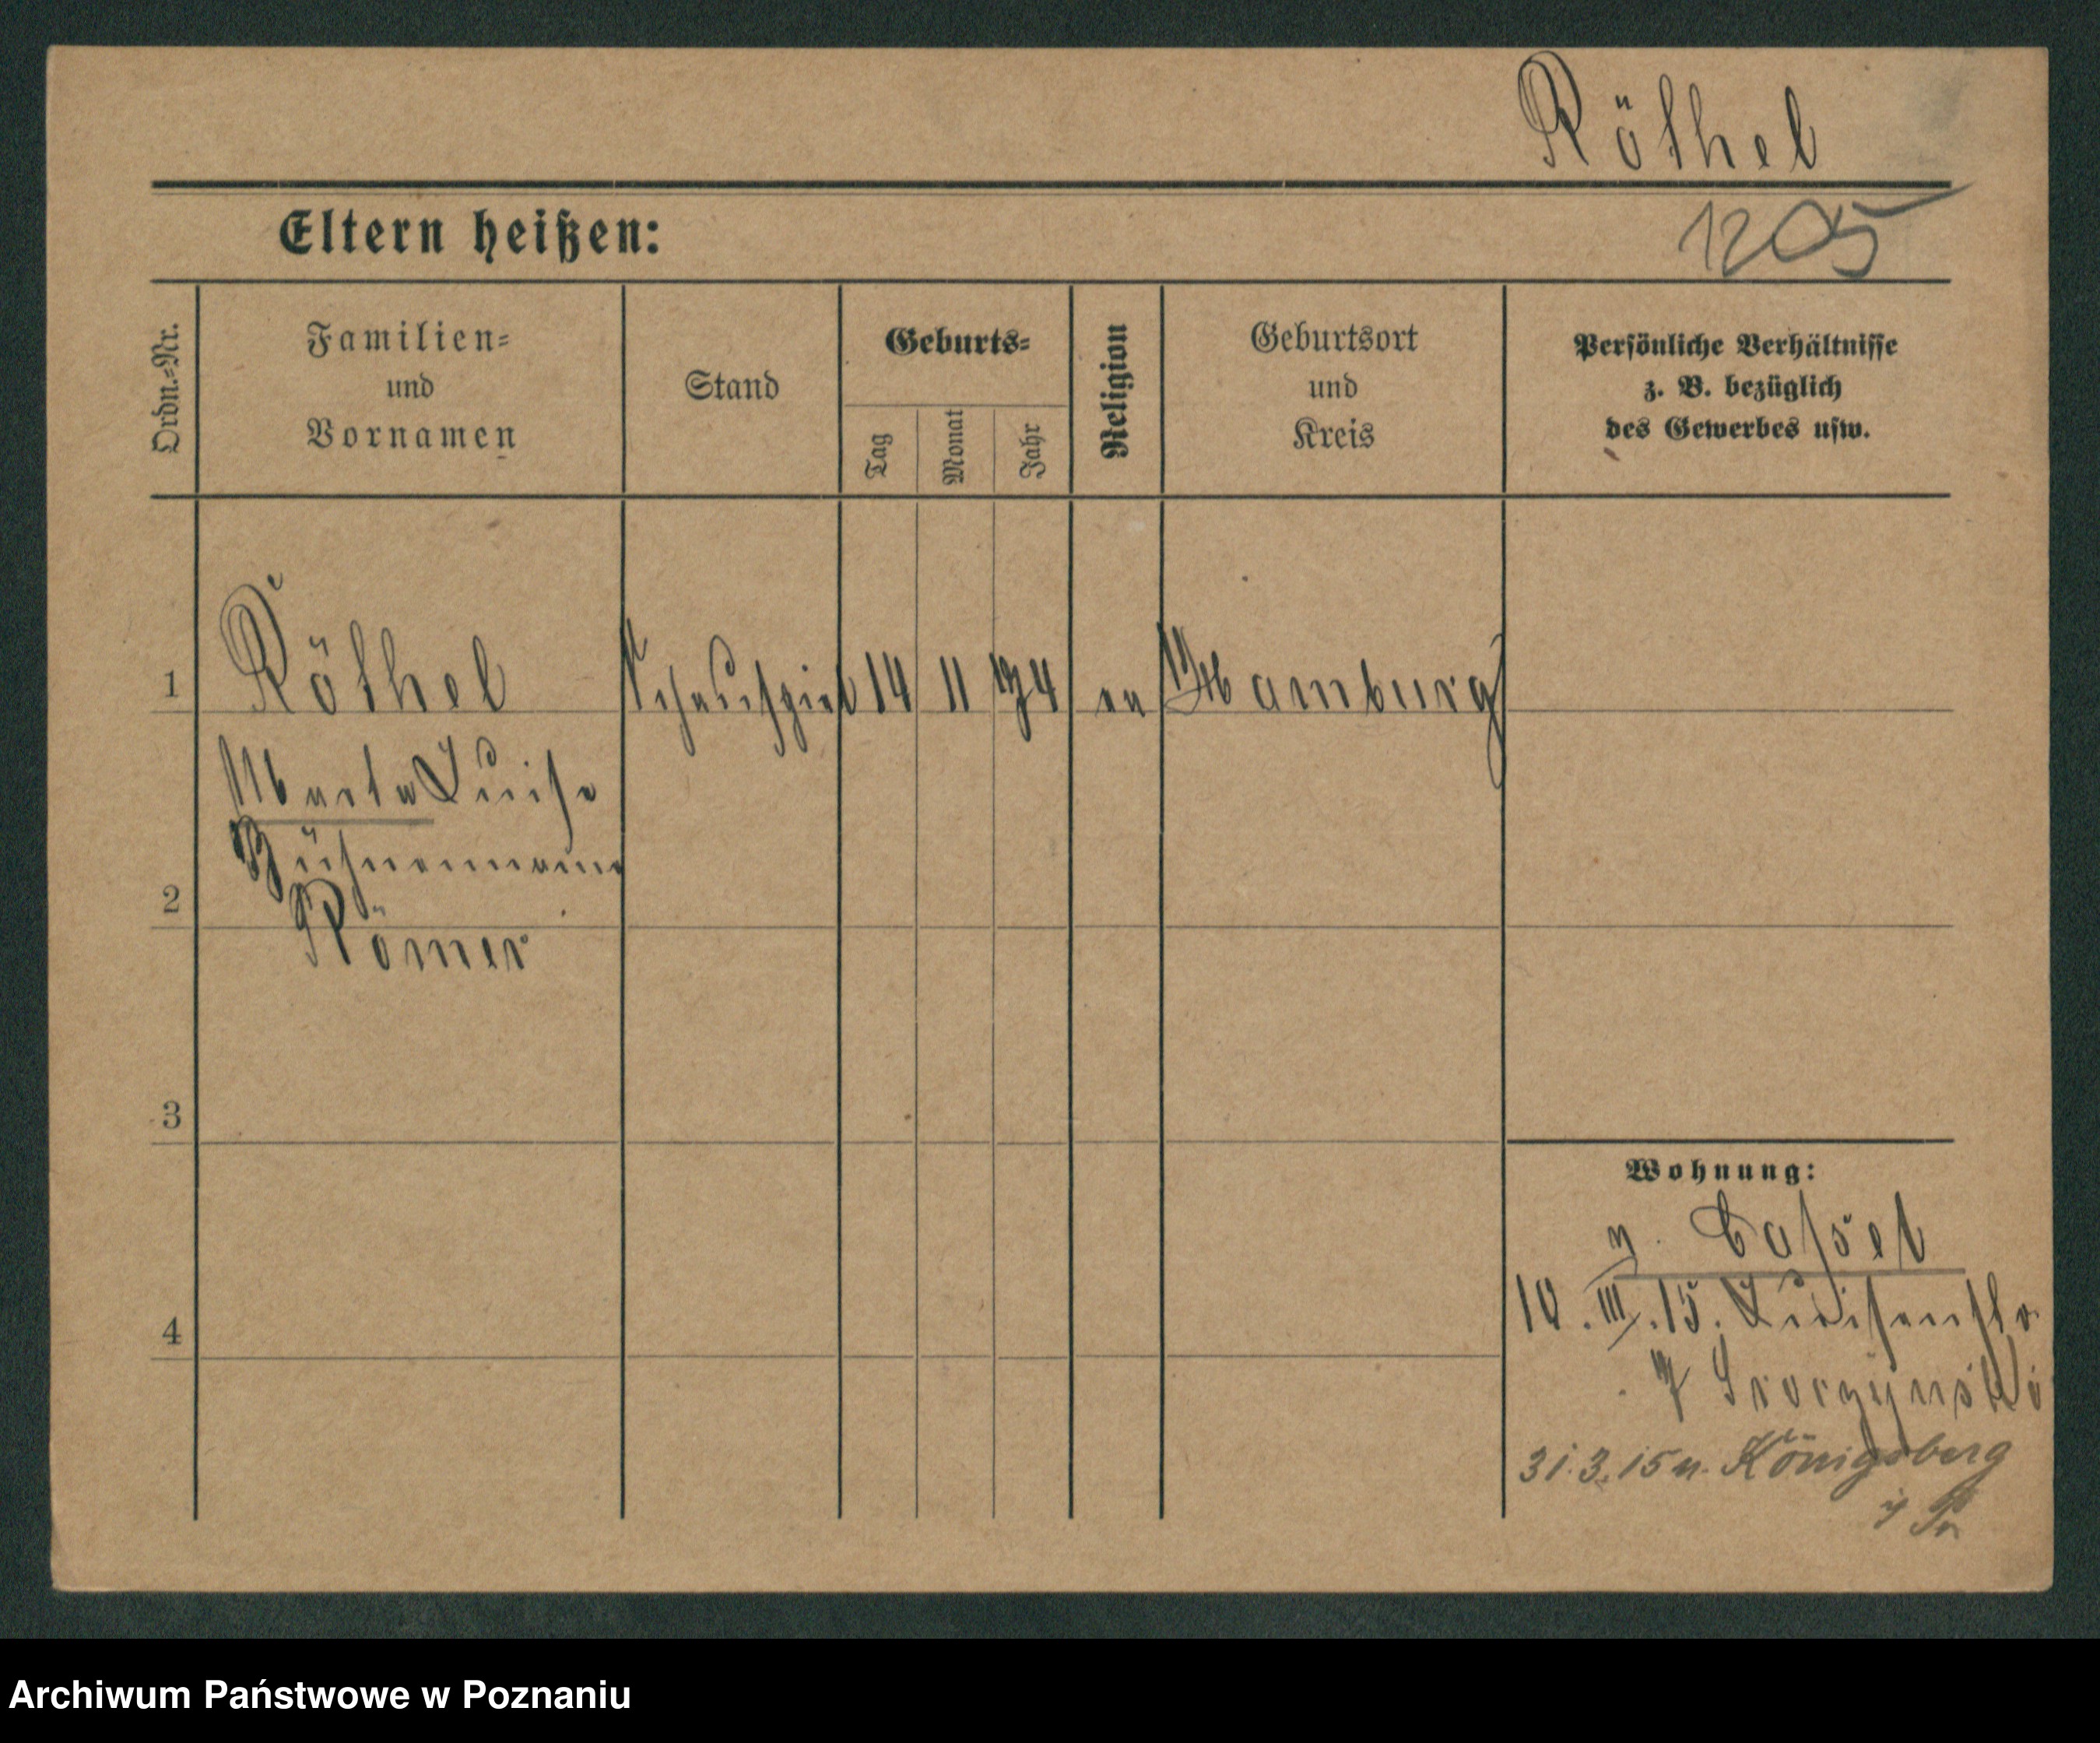 Röthel
1205
Eltern heißen:
Ordn.=Nr.
Familien=
und
Vornamen
Stand
Geburts=
Tag
Monat
Jahr
Religion
Geburtsort
und
Kreis
Persönliche Verhältnisse
z. B. bezüglich
des Gewerbes usw.
1
Röthel
Schauspiel
14
11
94
ev
Hamburg
Marta Luise
Bühnenname
2
Römer
3
Wohnung:
Cassel
10. III. 15. Luisenstr
4
31.3.15 n. Königsberg
i/ Pr
Archiwum Państwowe w Poznaniu